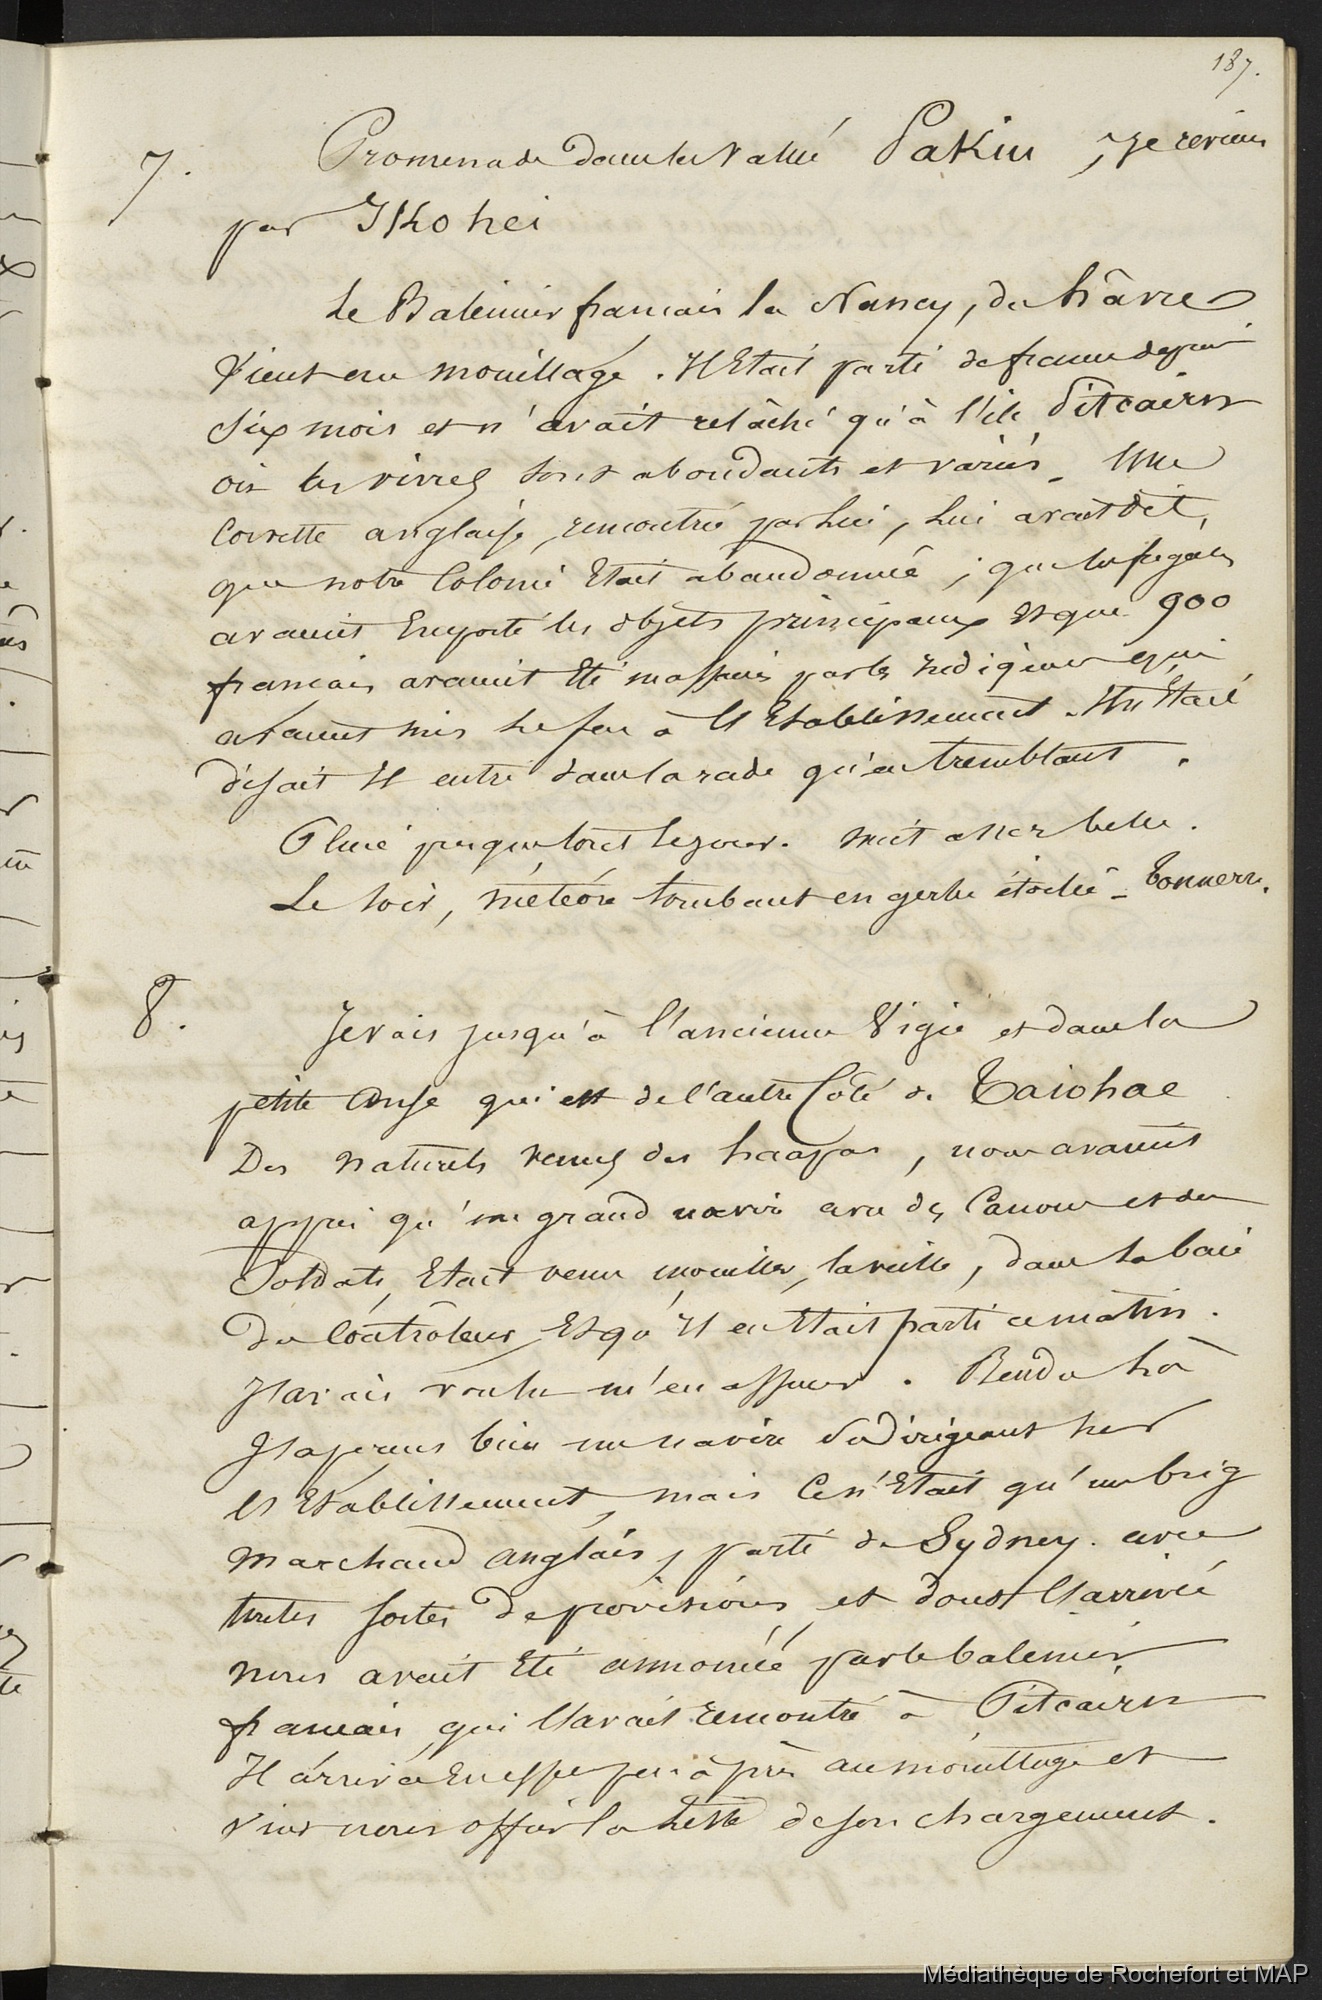 187.
7. Promenade dans la vallée Pakiu, je reviens
par Ikohei
Le Baleinier francais le Nancy, du hâvre
vient au mouillage. Il Etait parti de france depuis
Six mois et n'avait relâché qu'à l'ile Pitcairn
où les vivres sont abondants et variés. Une
Corvette anglaise, rencontrée par lui, lui avait dit,
que notre Colonie Etait abandonnée ; que les
avaient Emporté les objets principaux et que 900
francais avaient Eté massacrés par les Indigènes qui
avaient mis le feu à l'Etablissement. Il n'Etait
disait Il entré dans la rade qu'en tremblant.
Pluie presque tout le jour. nuit assez belle.
Le soir, météore tombant en gerbe étoilée - Tonnerre.
8. Je vais jusqu'à l'ancienne Vigie et dans la
petite Anse qui est de l'autre Côté de Taiohae
Des naturels venus des haapas, nous avaient
appris qu'un grand navire avec des Canons et des
Soldats, Etait venu mouiller, la veille, dans la baie
du Contrôleur Et qu'Il en Etait parti ce matin.
J'avais voulu m'en assurer. Rendu là
J'aperçus bien un navire se dirigeant vers
l'Etablissement, mais Ce n'Etait qu'un brig
marchand anglais, parti de Sydney. avec
toutes sortes de provisions et dont l'arrivée
nous avait Eté annoncée par le baleinier
francais qui l'avait rencontré à Pitcairn
Il arriva En effet peu après au mouillage et
vint nous offrir la liste de son chargement.
Médiathèque de Rochefort et MAP